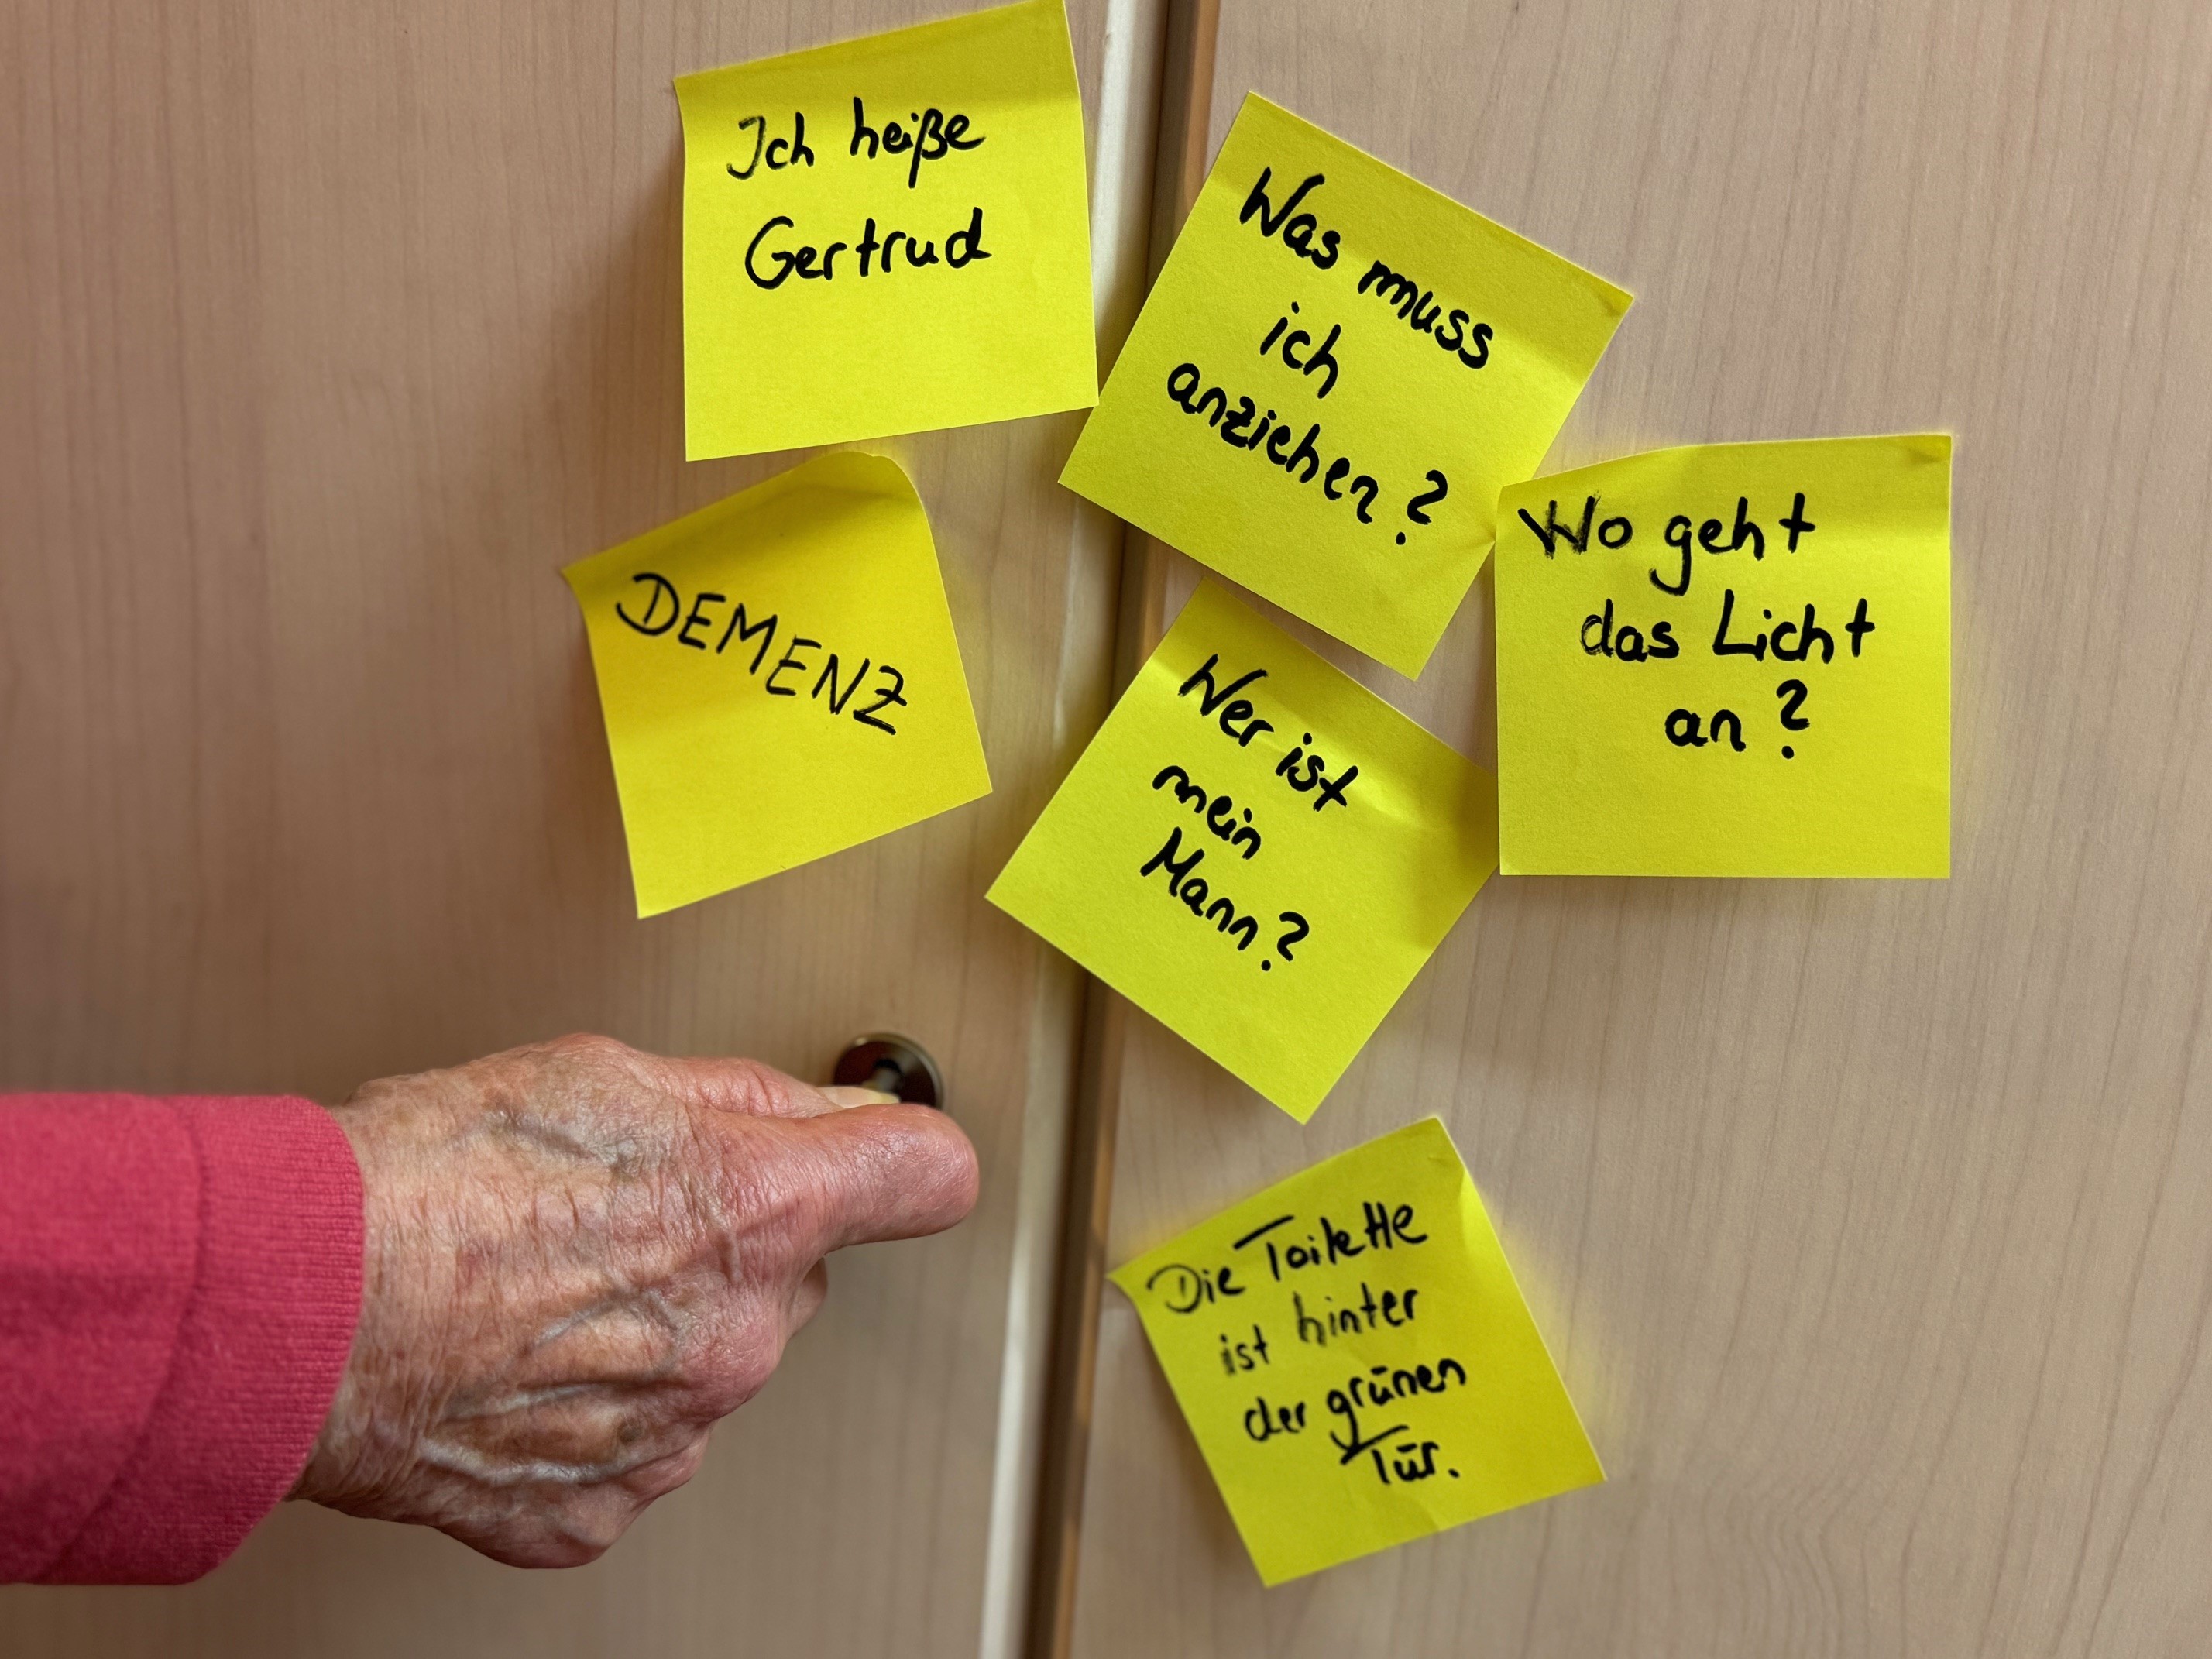 Ich heiße
Gertrud
Was muss
ich
anziehen?
Wo geht
das Licht
an?
DEMENZ
Wer ist
mein
Mann?
Die Toilette
ist hinter
der grünen
Tür.